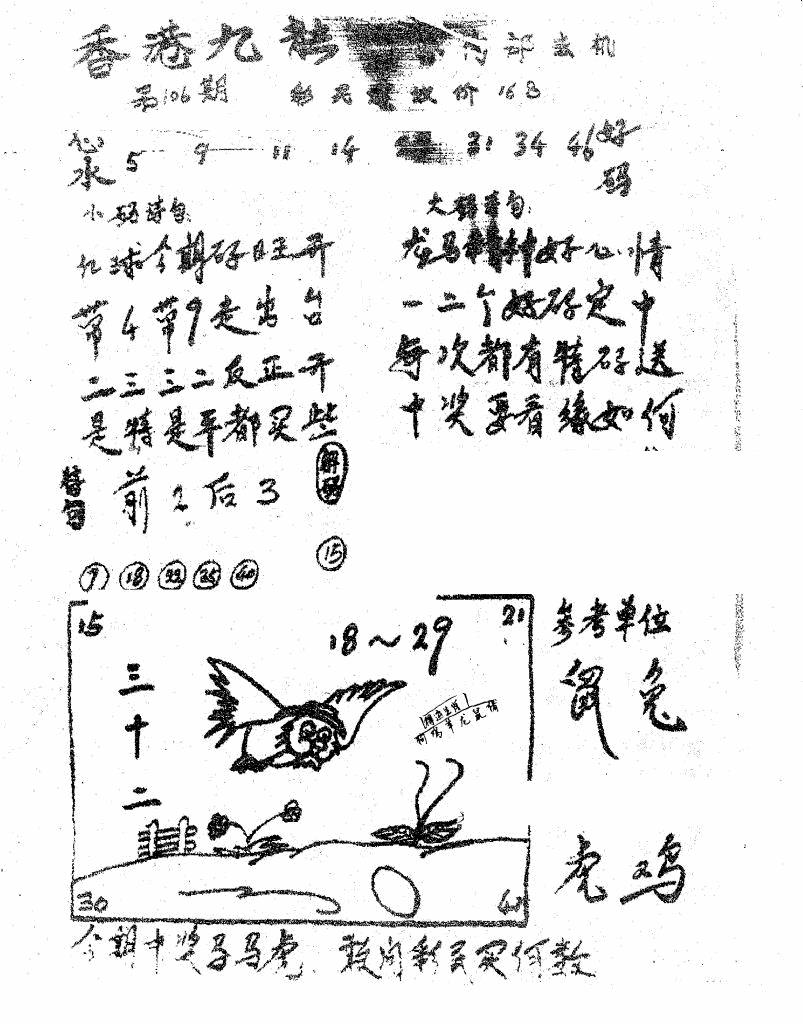 香港九龙内部玄机
第106期 彩民 放价 16 3
心水 5 9 11 14 31 34 46 好码
小码诗句:
红球今期码旺开
带4带9走出台
二三三二反正开
是特是平都买些
大码诗句:
龙马精神好心情
一二个好码定中
每次都有特码送
中奖要看缘如何
特句 前2后3
解码
7 18 22 25 40 15
15 18~29 21
三十二
30 40
参考单位
鼠兔
虎鸡
今期中奖马虎 敢问彩民买何数